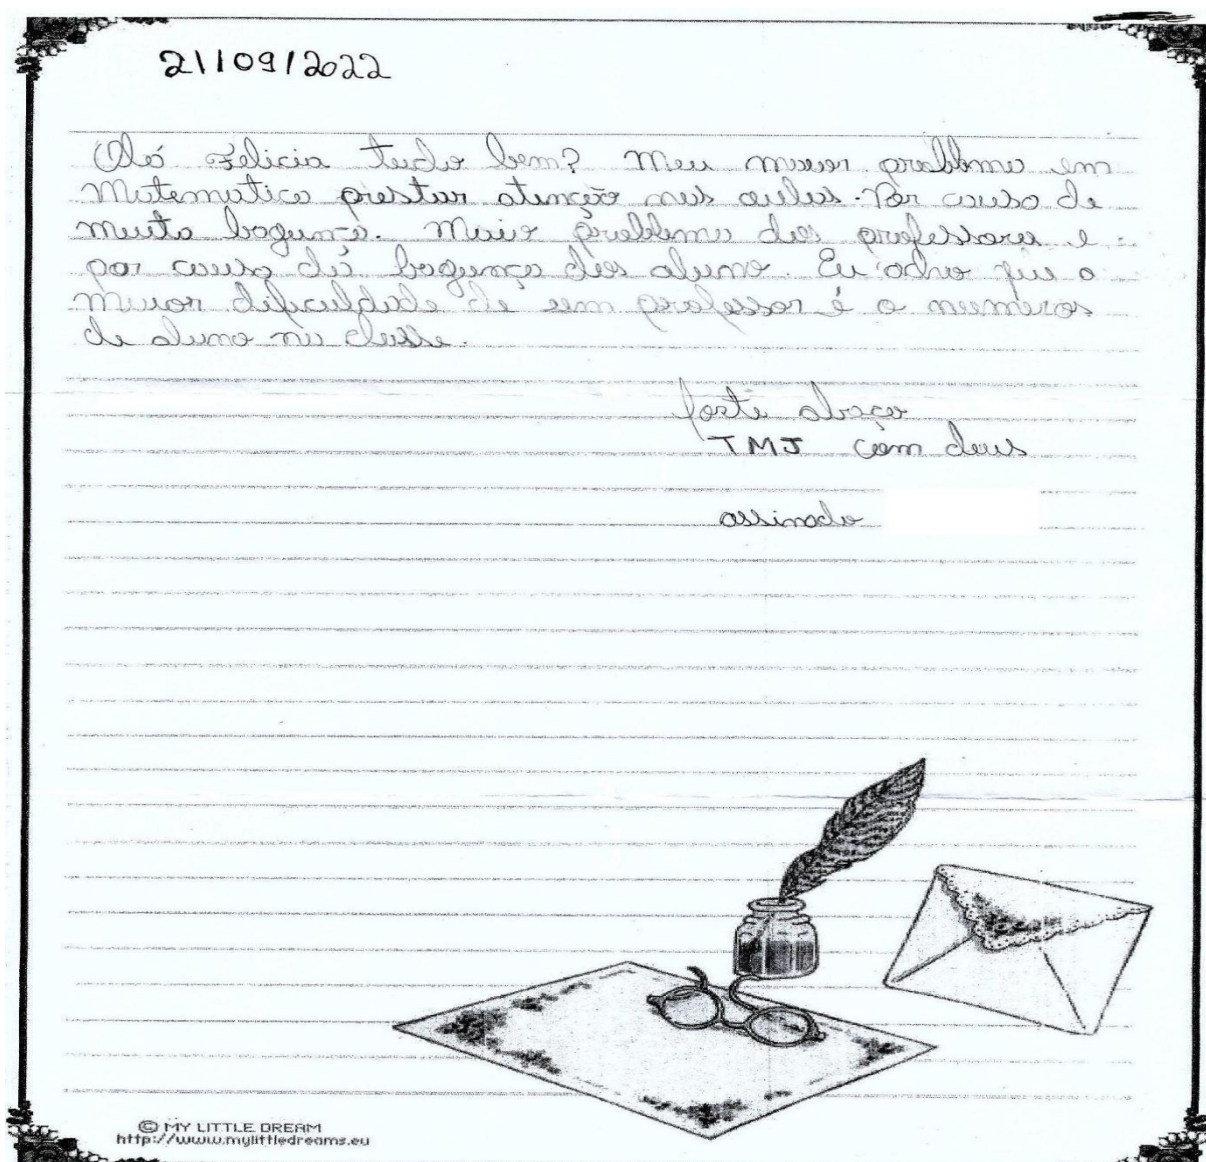 21/09/2022
Oló Felicia tudo bem? Meu maior problema em
Matematica prestar atenção nas aulas. Por causo de
muita bagunça. Maior problema dos professores e
por causa da bagunça dos aluno. Eu acho que a
maior dificuldade de um professor é o numeros
de aluno na classe.
forte abraço
TMJ com deus
assinado
© MY LITTLE DREAM
http://www.mylittledreams.eu